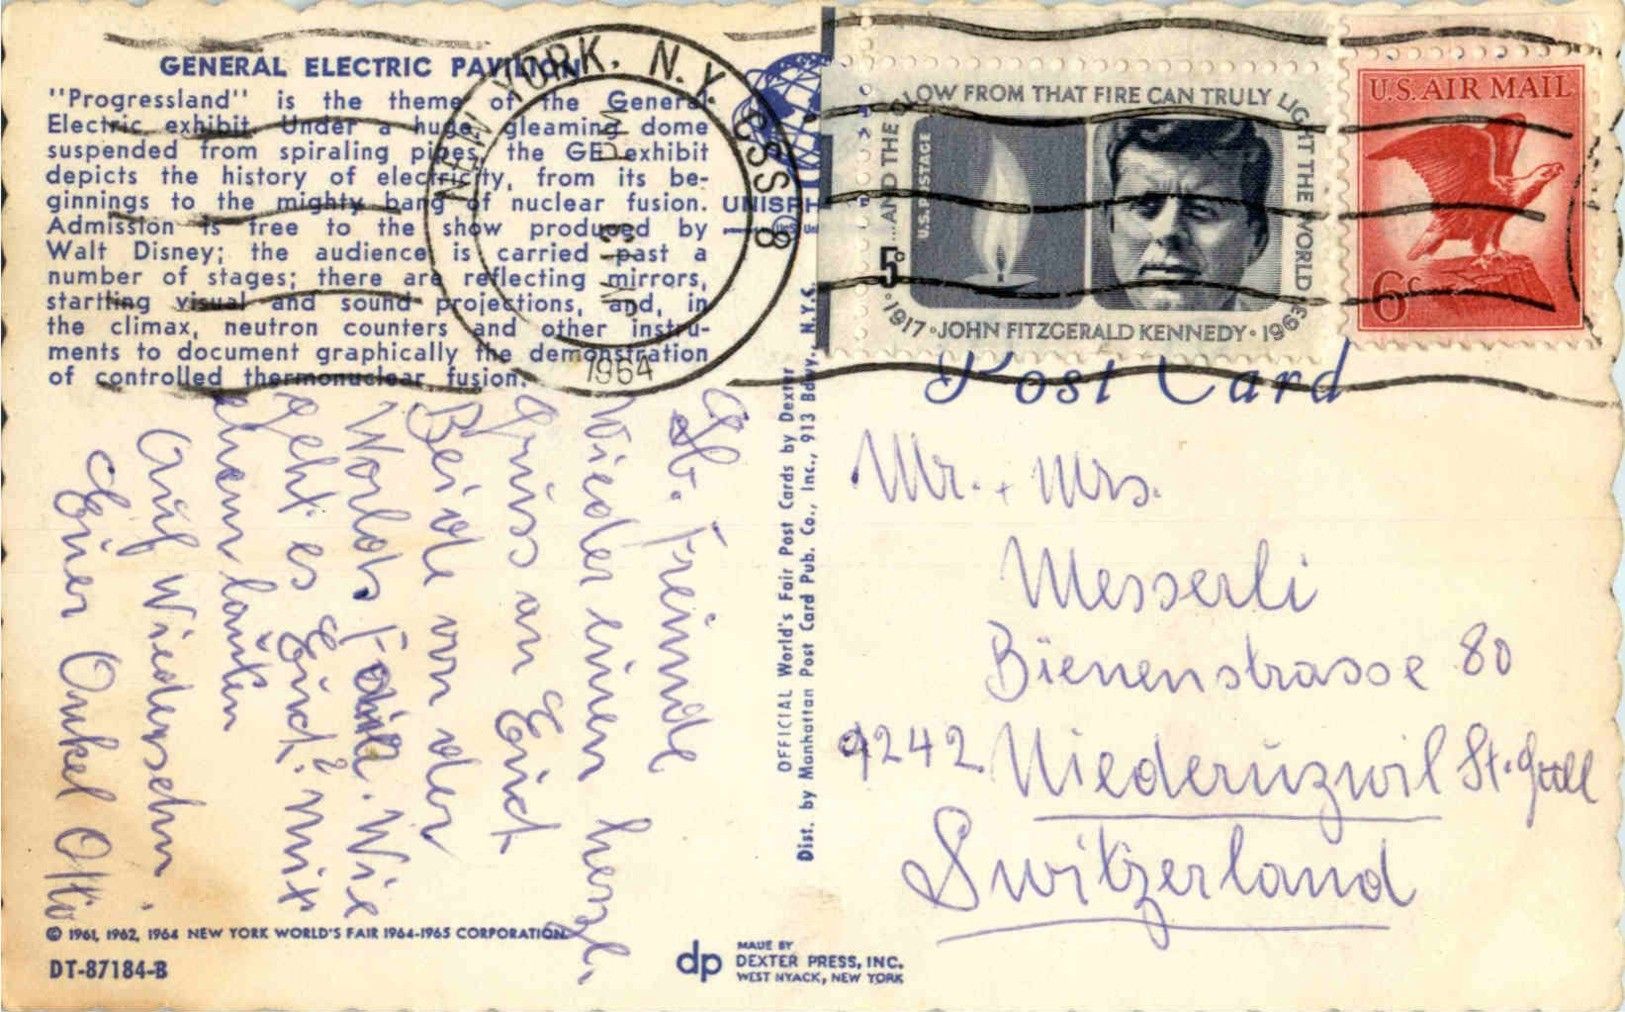 GENERAL ELECTRIC PAVILION
"Progressland" is the theme of the General
Electric exhibit. Under a huge, gleaming dome
suspended from spiraling pipes, the GE exhibit
depicts the history of electricity, from its be-
ginnings to the mighty bang of nuclear fusion.
Admission is free to the show produced by
Walt Disney; the audience is carried past a
number of stages; there are reflecting mirrors,
startling visual and sound projections, and, in
the climax, neutron counters and other instru-
ments to document graphically the demonstration
of controlled thermonuclear fusion.
NEW YORK, N.Y. OSS 8
PM
1964
UNISPH
...AND THE GLOW FROM THAT FIRE CAN TRULY LIGHT THE WORLD
U.S. POSTAGE
5c
1917 · JOHN FITZGERALD KENNEDY · 1963
U.S. AIR MAIL
6c
Post Card
Lb. Freunde
Wieder einen herzl.
Gruss an Euch
Beide von der
Worlds Fair. Wie
geht es Euch? Mit
ehem
Auf Wiedersehn.
Euer Onkel Otto
OFFICIAL World's Fair Post Cards by Dexter
Dist. by Manhattan Post Card Pub. Co., Inc., 913 Bdwy., N.Y.C.
Mr. + Mrs.
Messerli
Bienenstrasse 80
9242 Niederuzwil St. Gall
Switzerland
© 1961, 1962, 1964 NEW YORK WORLD'S FAIR 1964-1965 CORPORATION
DT-87184-B
dp
MADE BY
DEXTER PRESS, INC.
WEST NYACK, NEW YORK